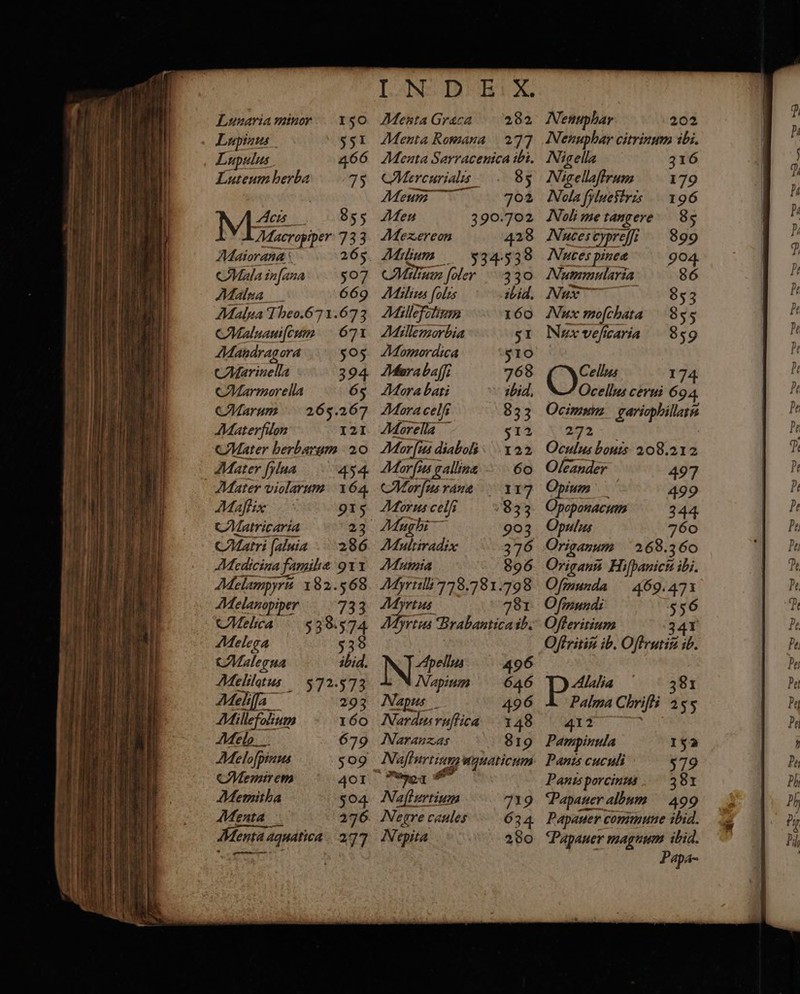 INDEX.
Lunaria minor 150
Lupinus 551
Lupulus 466
Luteum herba 75
MAcis 855
Macropiper 733
Maiorana 265
Mala insana 507
Malua 669
Malua Theo. 671.673
Maluauiscum 671
Mandragora 505
Marinella 394
Marmorella 65
Marum 265.267
Materfilon 121
Mater herbarum 20
Mater sylua 454
Mater violarum 164
Mastix 915
Matricaria 23
Matri saluia 286
Medicina familiæ 911
Melampyrũ 182.568
Melanopiper 733
Melica 538.574
Melega 538
Malegua ibid.
Melilotus 572.573
Melissa 293
Millefolium 160
Melo 679
Melospinus 509
Memirem 401
Memitha 504
Menta 276
Menta aquatica 277
Menta Græca 282
Menta Romana 277
Menta Sarracenica ibi.
Mercurialis 85
Meum 702
Meu 390.702
Mezereon 428
Milium 534.538
Milium soler 330
Milius solis ibid.
Millefolium 160
Millemorbia 51
Momordica 510
Morabassi 768
Mora bati ibid.
Mora celsi 833
Morella 512
Morsus diaboli 122
Morsus gallinæ 60
Morsus ranæ 117
Morus celsi 833
Mughi 903
Multiradix 376
Mumia 896
Myrtilli 778.781.798
Myrtus 781
Myrtus Brabantica ib.
NApellus 496
Napium 646
Napus 496
Nardus rustica 148
Naranzas 819
Nasturtium aquaticum
Nasturtium 719
Negre caules 634
Nepita 280
Nenuphar 202
Nenuphar citrinum ibi.
Nigella 316
Nigellastrum 179
Nola syluestris 196
Noli me tangere 85
Nuces cypressi 899
Nuces pineæ 904
Nummularia 86
Nux 853
Nux moschata 855
Nux vesicaria 859
OCellus 174
Ocellus cerui 694
Ocimum gariophillatũ
272
Oculus bouis 208.212
Oleander 497
Opium 499
Opoponacum 344
Opulus 760
Origanum 268.360
Origanũ Hispanicũ ibi.
Osmunda 469.471
Osmundi 556
Osteritium 341
Ostritiũ ib. Ostrutiũ ib.
PAlalia 381
Palma Christi 255
412
Pampinula 152
Panis cuculi 579
Panis porcinus 381
Papauer album 499
Papauer commune ibid.
Papauer magnum ibid.
Papa-